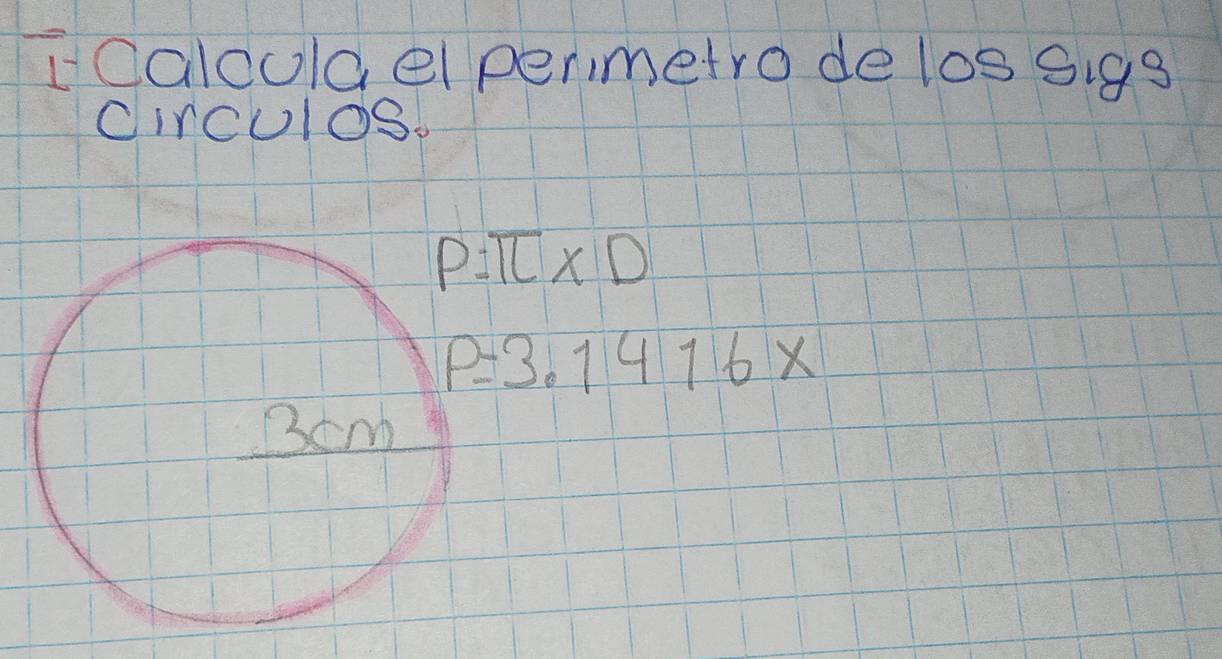 I-Calcula el perimetro de los sigs
circulos.
P=π x D
P=3.1416x
3cm